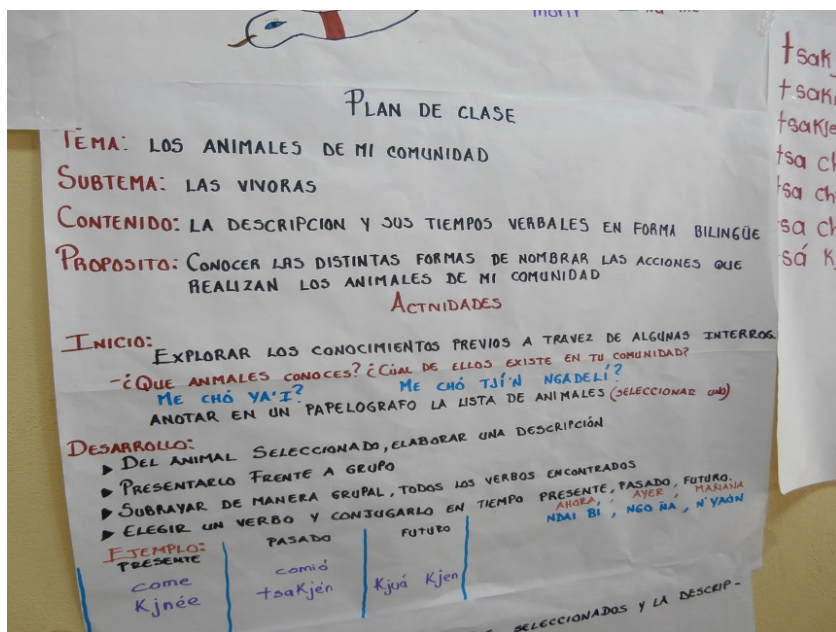 PLAN DE CLASE
TEMA: LOS ANIMALES DE MI COMUNIDAD
SUBTEMA: LAS VIVORAS
CONTENIDO: LA DESCRIPCION Y SUS TIEMPOS VERBALES EN FORMA BILINGÜE
PROPOSITO: CONOCER LAS DISTINTAS FORMAS DE NOMBRAR LAS ACCIONES QUE
REALIZAN LOS ANIMALES DE MI COMUNIDAD
ACTIVIDADES
INICIO:
EXPLORAR LOS CONOCIMIENTOS PREVIOS A TRAVEZ DE ALGUNAS INTERROG.
-¿QUE ANIMALES CONOCES? ¿CUAL DE ELLOS EXISTE EN TU COMUNIDAD?
ME CHÓ YA'I? ME CHÓ TJÍ'N NGADELÍ?
ANOTAR EN UN PAPELOGRAFO LA LISTA DE ANIMALES (SELECCIONAR UNO)
DESARROLLO:
▶ DEL ANIMAL SELECCIONADO, ELABORAR UNA DESCRIPCIÓN
▶ PRESENTARLO FRENTE A GRUPO
▶ SUBRAYAR DE MANERA GRUPAL, TODOS LOS VERBOS ENCONTRADOS
▶ ELEGIR UN VERBO Y CONJUGARLO EN TIEMPO PRESENTE, PASADO, FUTURO.
AHORA, AYER, MAÑANA
NDAI BI, NGO ÑA, N'YAÓN
EJEMPLO:
PRESENTE PASADO FUTURO
come comió
Kjnée tsaKjén Kjuá Kjen
SELECCIONADOS Y LA DESCRIP-
tsak
tsak
tsaKje
tsa ch
tsa ch
sa ch
sá K